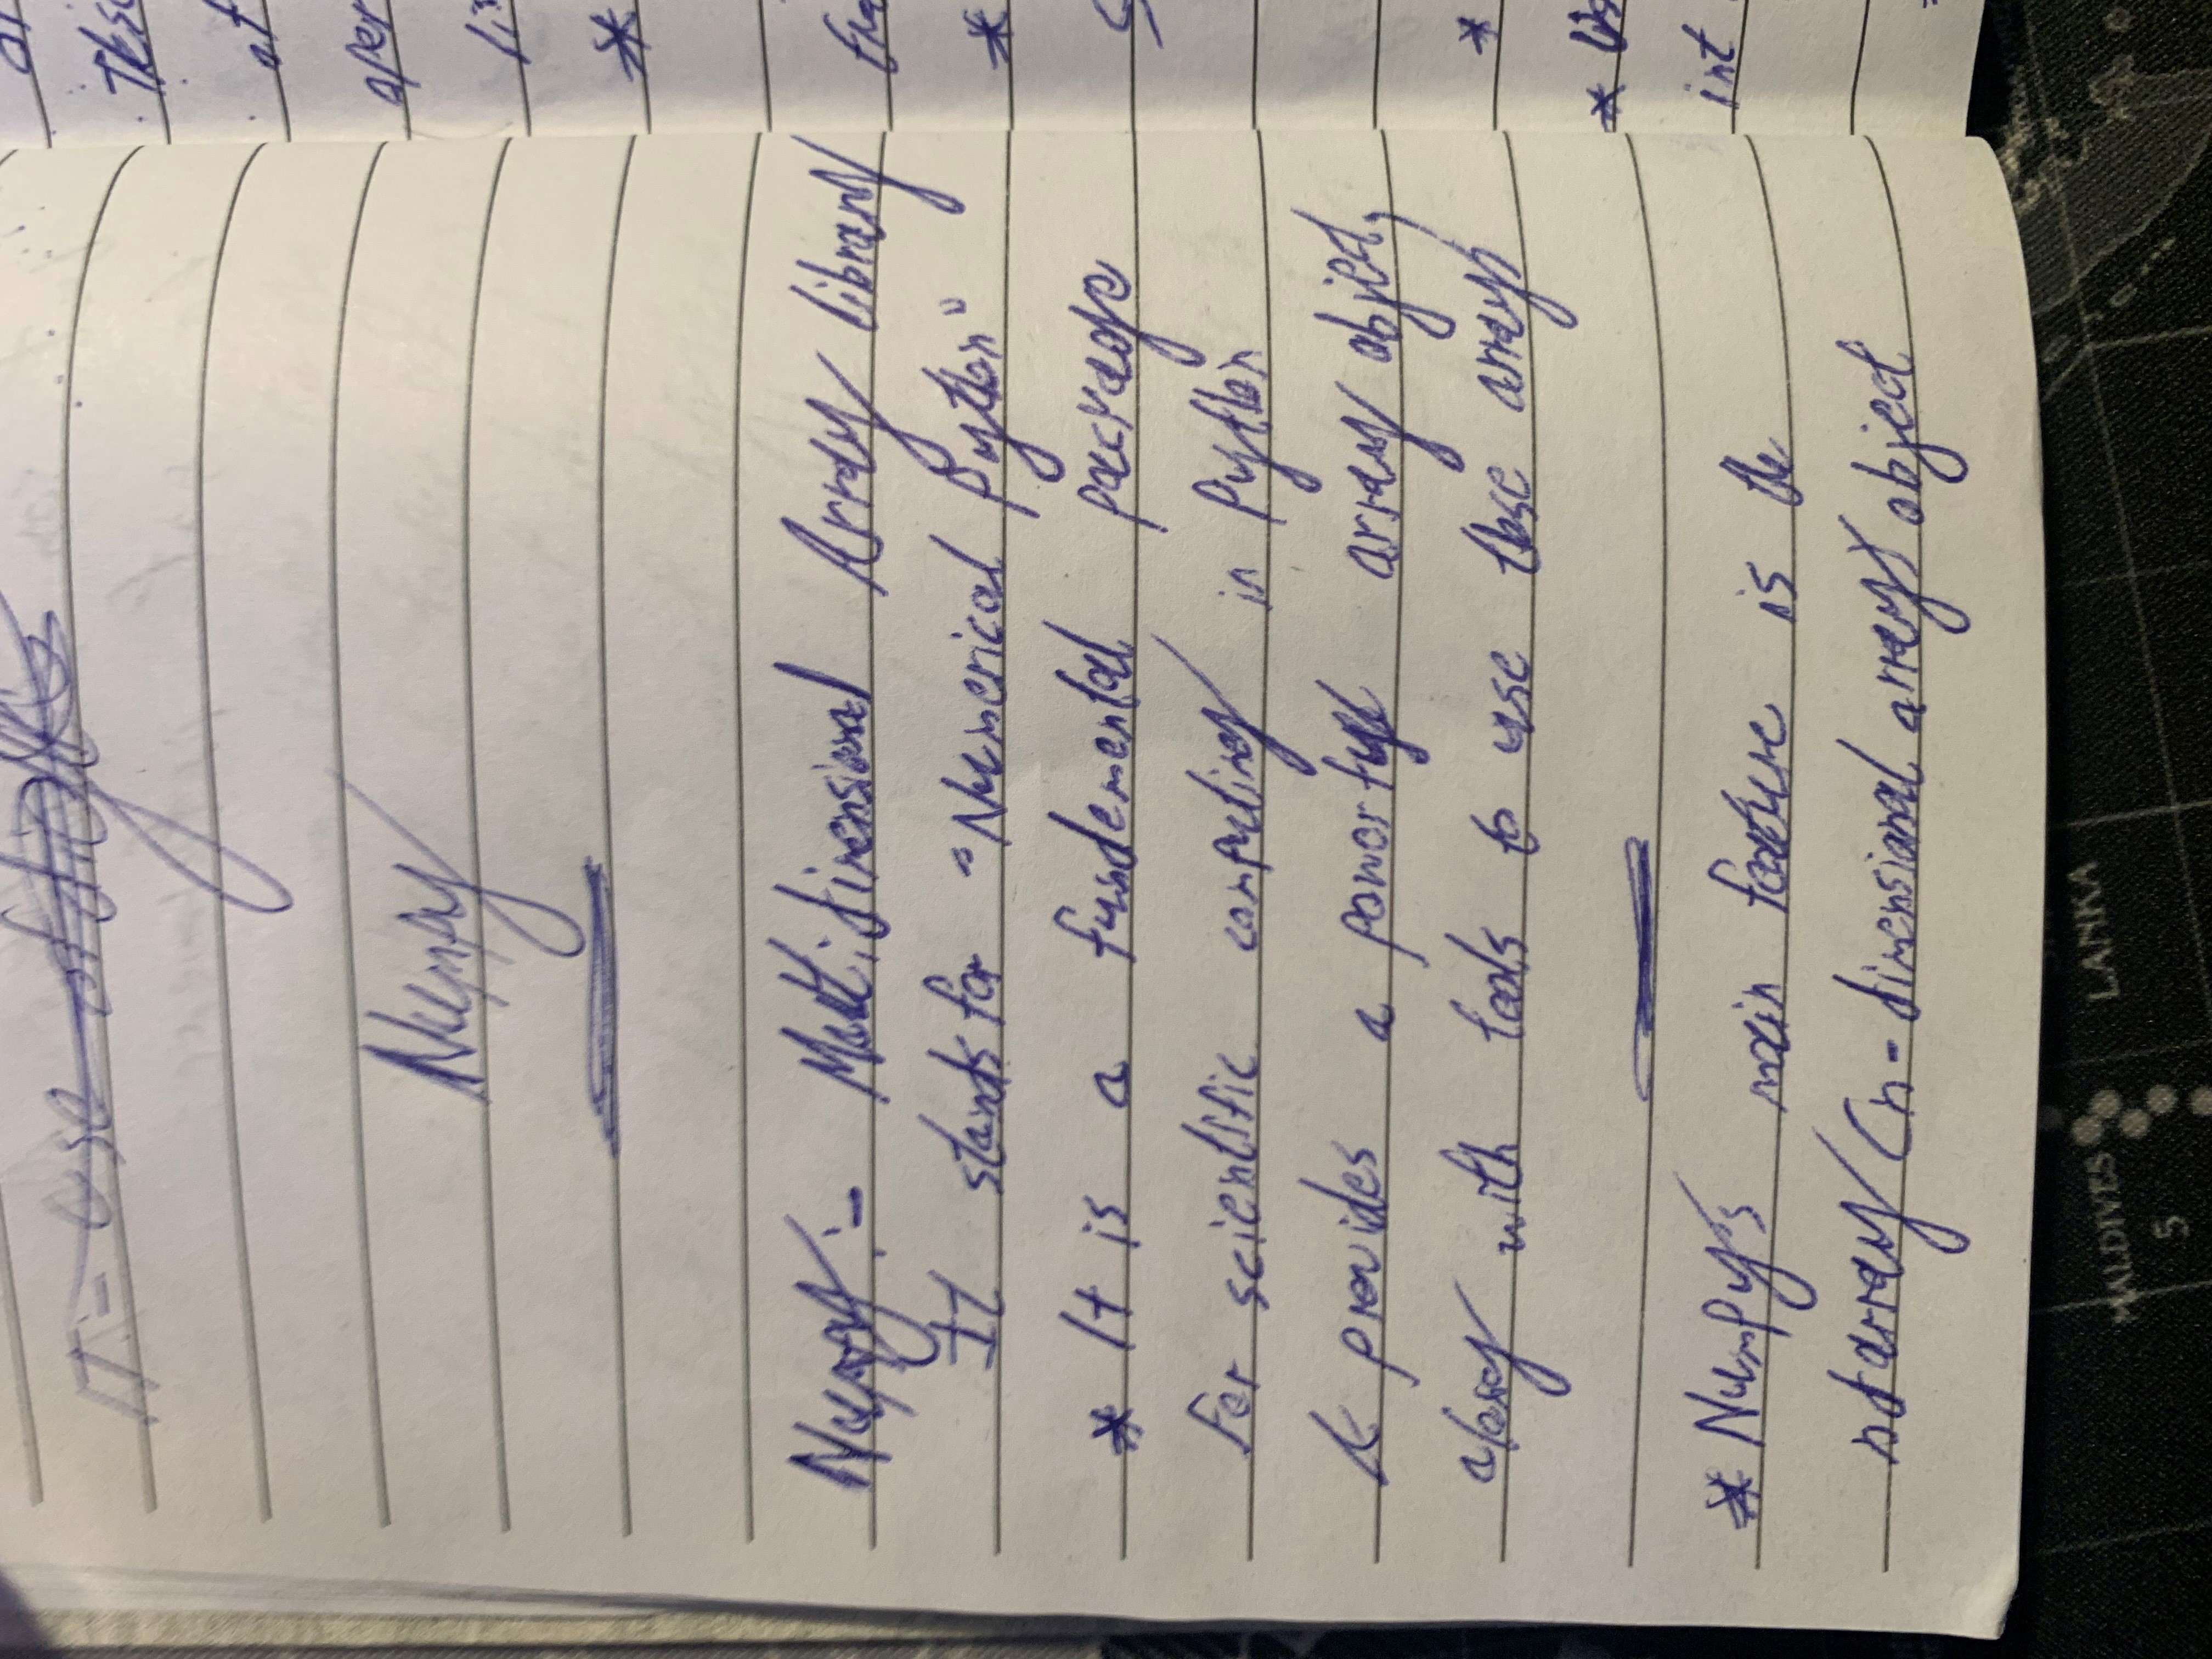 IT:- use of
Numpy
Numpy:- Multidimensional Array library
It stands for "Numerical Python"
* It is a fundemental package
For scientific computing in Python
It provides a powerful array object,
along with tools to use these arrays
* NumPy's main feature is the
ndarray (n-dimensional array) object
of
oper
*
*
*
* Us
int
MALDIVES
5
LANKA